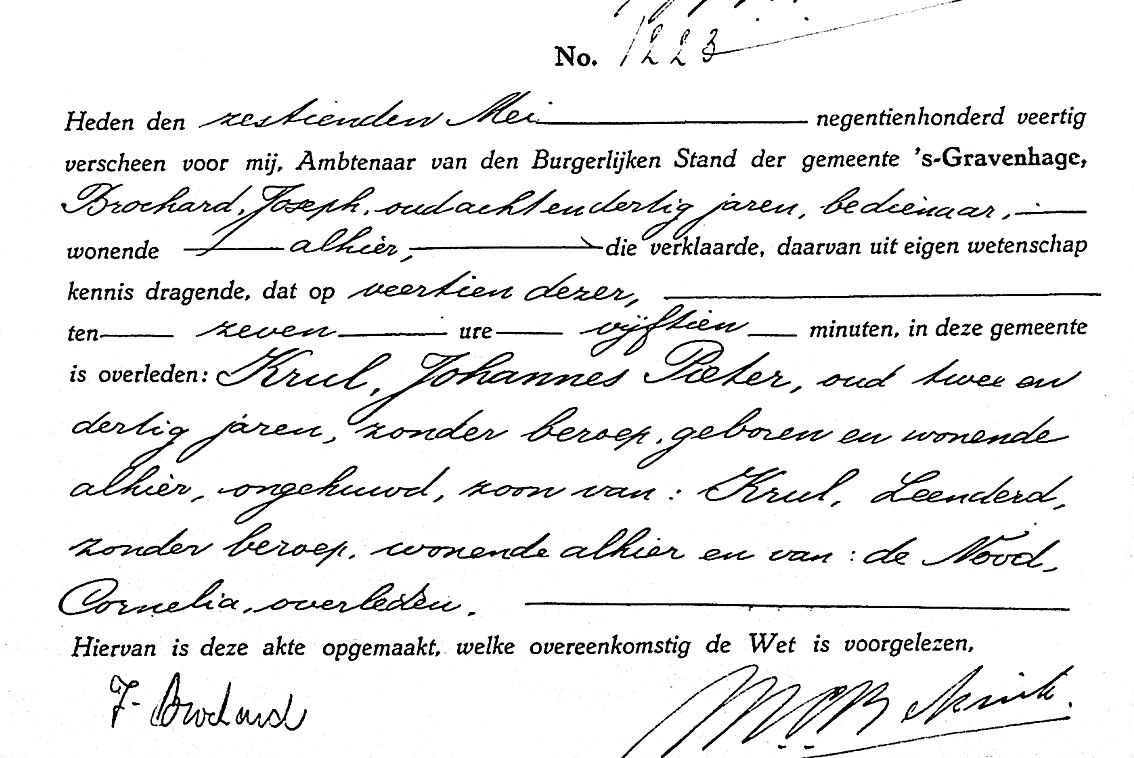 No. 1223
Heden den zestienden Mei negentienhonderd veertig
verscheen voor mij, Ambtenaar van den Burgerlijken Stand der gemeente 's-Gravenhage,
Brochard, Joseph, oud achtendertig jaren, bedienaar,
wonende alhier, die verklaarde, daarvan uit eigen wetenschap
kennis dragende, dat op veertien dezer,
ten zeven ure vijftien minuten, in deze gemeente
is overleden: Krul, Johannes Pieter, oud twee en
dertig jaren, zonder beroep, geboren en wonende
alhier, ongehuwd, zoon van: Krul, Leenderd,
zonder beroep, wonende alhier en van: de Nood,
Cornelia, overleden.
Hiervan is deze akte opgemaakt, welke overeenkomstig de Wet is voorgelezen,
J. Brochard